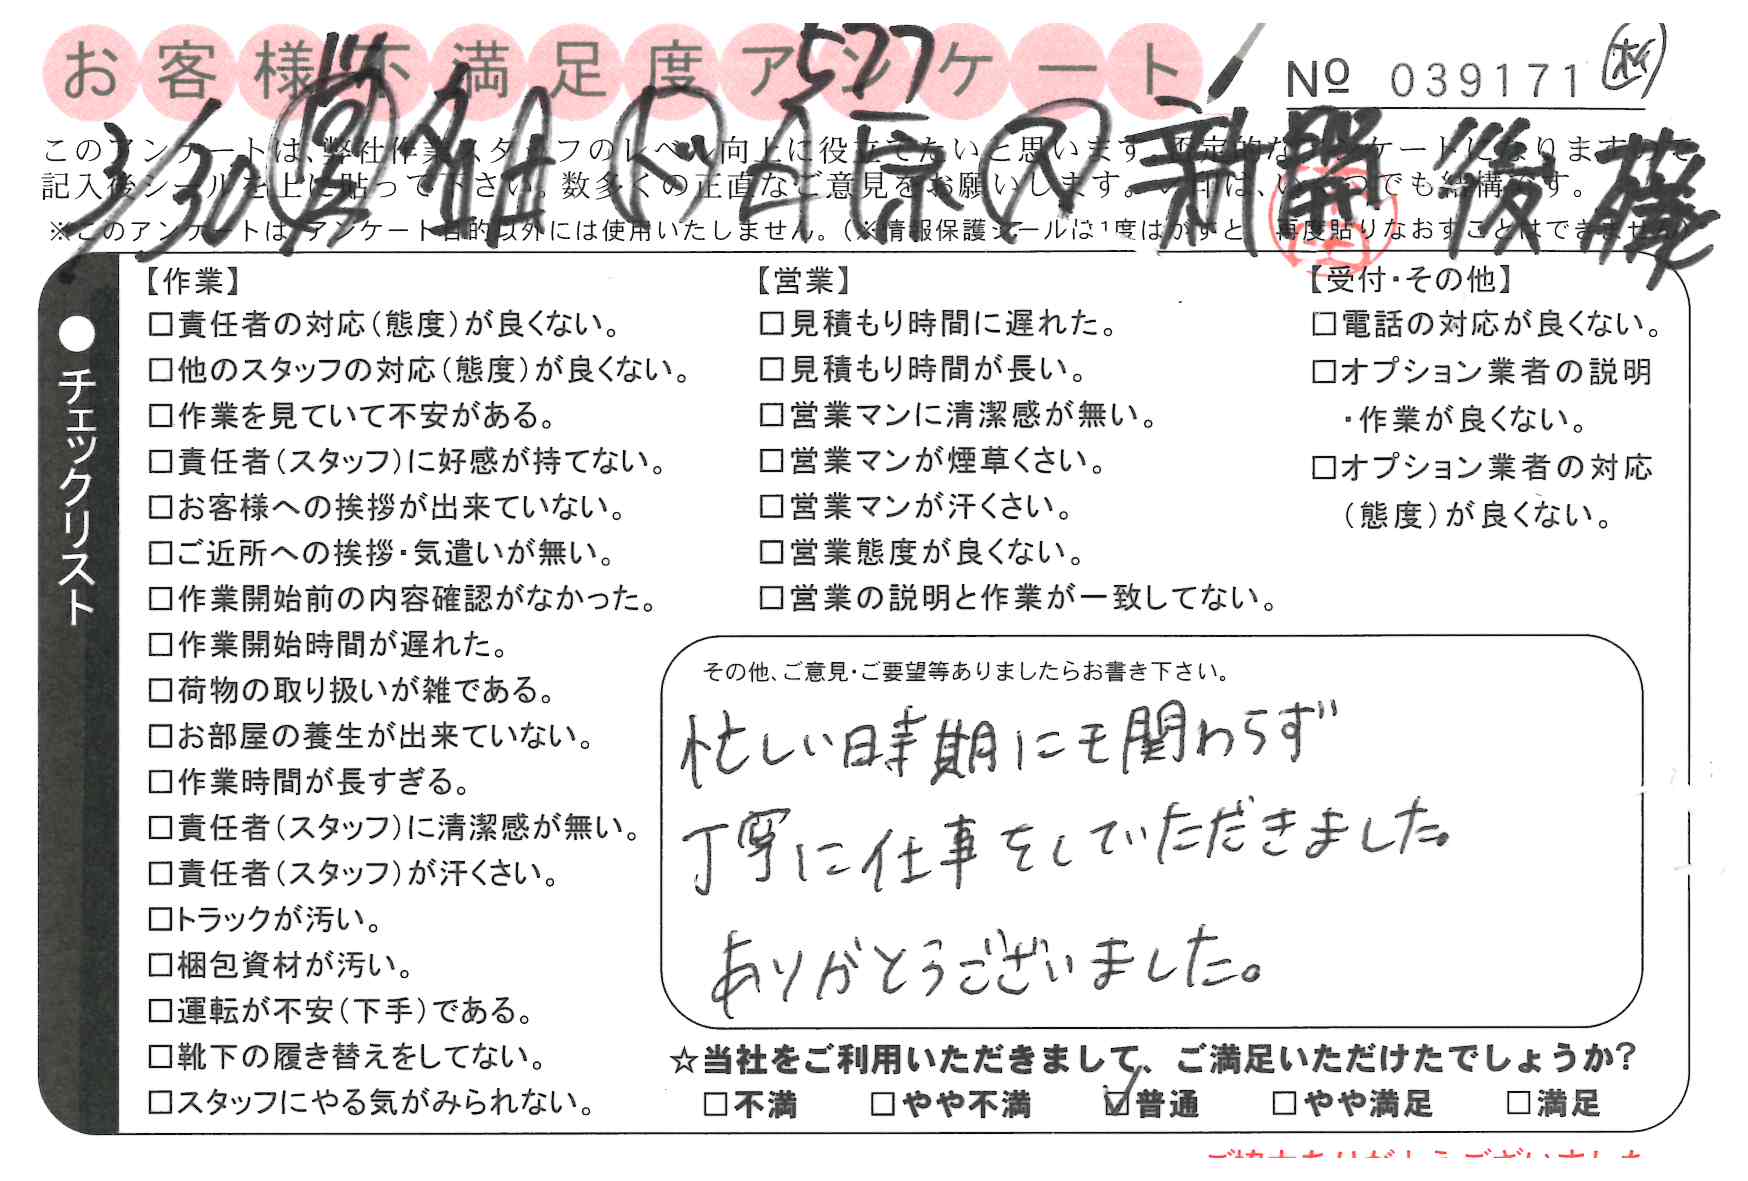 お客様不満足度アンケート
577
№ 039171
3/30
このアンケートは、弊社作業スタッフのレベル向上に役立てたいと思います。否定的なアンケートになりますので
記入後シールを上に貼って下さい。数多くの正直なご意見をお願いします。
後藤
※このアンケートは、アンケート目的以外には使用いたしません。(※情報保護シールは1度はがすと、再度貼りなおすことはできません)
●チェックリスト
【作業】
□責任者の対応(態度)が良くない。
□他のスタッフの対応(態度)が良くない。
□作業を見ていて不安がある。
□責任者(スタッフ)に好感が持てない。
□お客様への挨拶が出来ていない。
□ご近所への挨拶・気遣いが無い。
□作業開始前の内容確認がなかった。
□作業開始時間が遅れた。
□荷物の取り扱いが雑である。
□お部屋の養生が出来ていない。
□作業時間が長すぎる。
□責任者(スタッフ)に清潔感が無い。
□責任者(スタッフ)が汗くさい。
□トラックが汚い。
□梱包資材が汚い。
□運転が不安(下手)である。
□靴下の履き替えをしてない。
□スタッフにやる気がみられない。
【営業】
□見積もり時間に遅れた。
□見積もり時間が長い。
□営業マンに清潔感が無い。
□営業マンが煙草くさい。
□営業マンが汗くさい。
□営業態度が良くない。
□営業の説明と作業が一致してない。
【受付・その他】
□電話の対応が良くない。
□オプション業者の説明
・作業が良くない。
□オプション業者の対応
(態度)が良くない。
その他、ご意見・ご要望等ありましたらお書き下さい。
忙しい時期にモ関わらず
丁寧に仕事をしていただきました。
ありがとうございました。
☆当社をご利用いただきまして、ご満足いただけたでしょうか?
□不満 □やや不満 ☑普通 □やや満足 □満足
ご協力ありがとうございました